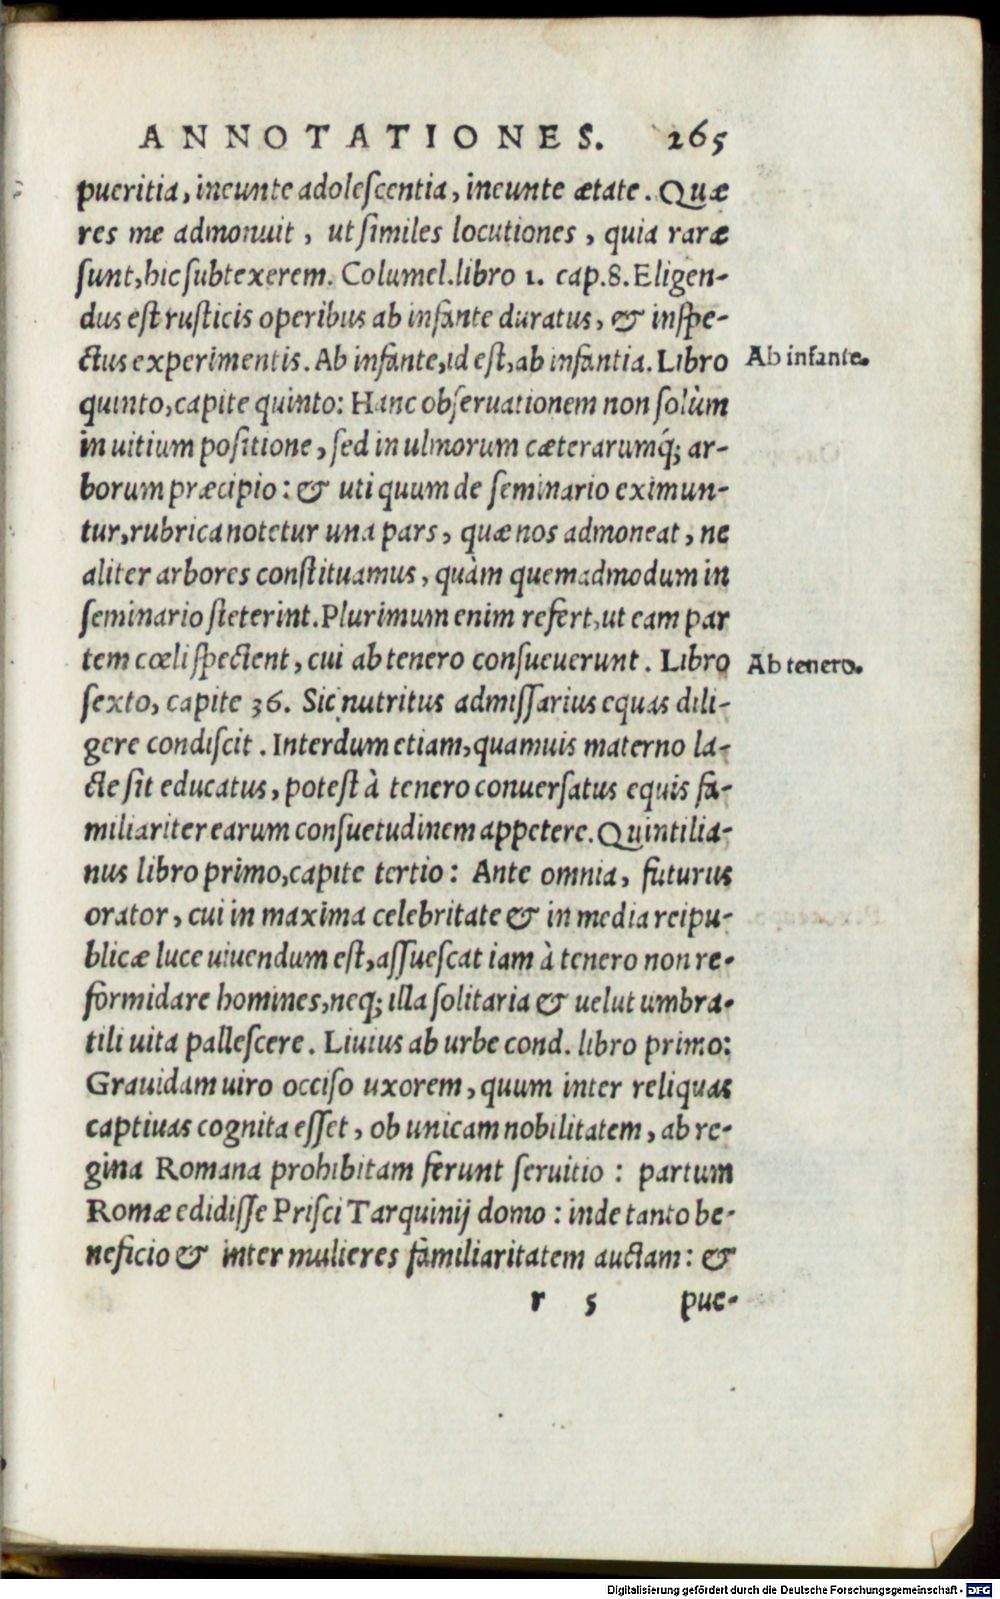 ANNOTATIONES. 265
pueritia, ineunte adolescentia, ineunte ætate. Quæ
res me admonuit, ut similes locutiones, quia raræ
sunt, hic subtexerem. Columel. libro 1. cap. 8. Eligen-
dus est rusticis operibus ab infante duratus, & inspe-
ctus experimentis. Ab infante, id est, ab infantia. Libro
Ab infante.
quinto, capite quinto: Hanc obseruationem non solùm
in uitium positione, sed in ulmorum cæterarumq́; ar-
borum præcipio: & uti quum de seminario eximun-
tur, rubrica notetur una pars, quæ nos admoneat, ne
aliter arbores constituamus, quàm quemadmodum in
seminario steterint. Plurimum enim refert, ut eam par
tem cœli spectent, cui ab tenero consueuerunt. Libro
Ab tenero.
sexto, capite 36. Sic nutritus admissarius equas dili-
gere condiscit. Interdum etiam, quamuis materno la-
cte sit educatus, potest à tenero conuersatus equis fa-
miliariter earum consuetudinem appetere. Quintilia-
nus libro primo, capite tertio: Ante omnia, futurus
orator, cui in maxima celebritate & in media reipu-
blicæ luce uiuendum est, assuescat iam à tenero non re-
formidare homines, neq; illa solitaria & uelut umbra-
tili uita pallescere. Liuius ab urbe cond. libro primo:
Grauidam uiro occiso uxorem, quum inter reliquas
captiuas cognita esset, ob unicam nobilitatem, ab re-
gina Romana prohibitam ferunt seruitio: partum
Romæ edidisse Prisci Tarquinij domo: inde tanto be-
neficio & inter mulieres familiaritatem auctam: &
r 5 pue-
Digitalisierung gefördert durch die Deutsche Forschungsgemeinschaft - DFG